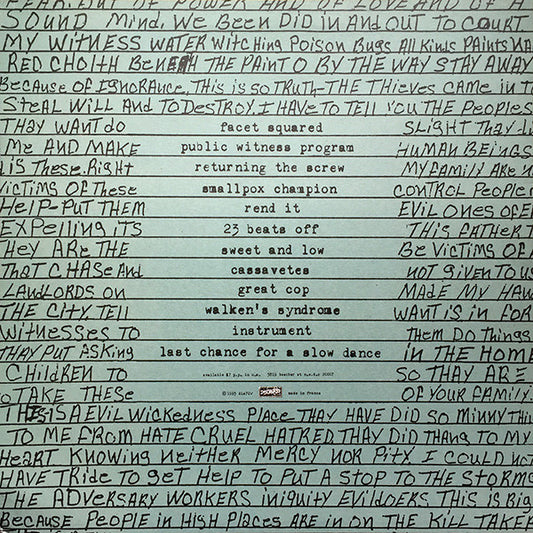 FEAR. BUT OF POWER AND OF LOVE AND OF A
SOUND MIND. WE BEEN DID IN AND OUT TO COURT.
MY WITNESS WATER WITCHING POISON BUGS ALL KINDS PAINTS
RED CHOLTH BENEATH THE PAINT O BY THE WAY STAY AWAY
BECAUSE OF IGNORANCE, THIS IS SO TRUTH-THE THIEVES CAME IN
STEAL WILL AND TO DESTROY. I HAVE TO TELL YOU THE PEOPLES
THAY WANT DO facet squared SLIGHT THAY
ME AND MAKE public witness program HUMAN BEINGS
IS THESE. RIGHT returning the screw MY FAMILY ARE
VICTIMS OF THESE smallpox champion CONTROL PEOPLE
HELP PUT THEM rend it EVIL ONES OF
EXPELLING ITS 23 beats off THIS FATHER
HEY ARE THE sweet and low BE VICTIMS OF
THAT CHASE AND cassavetes NOT GIVEN TO US
LANDLORDS ON great cop MADE MY
THE CITY. TELL walken's syndrome WANT IS IN FOR
WITNESSES TO instrument THEM DO THINGS
THAY PUT ASKING last chance for a slow dance IN THE HOME
available $7 p.p. in u.s. 3819 beecher st n.w. d.c 20007
CHILDREN TO SO THAY ARE
TAKE THESE ©1993 DISCHORD made in france OF YOUR FAMILY.
THIS IS A EVIL WICKEDNESS PLACE THAY HAVE DID SO MINNY
TO ME FROM HATE CRUEL HATRED THAY DID THANG TO MY
HEART KNOWING NEITHER MERCY NOR PITY. I COULD NOT
HAVE TRIDE TO GET HELP TO PUT A STOP TO THE STORMS
THE ADVERSARY WORKERS INIQUITY EVILDOERS THIS IS BIG
BECAUSE PEOPLE IN HIGH PLACES ARE IN ON THE KILL TAKE